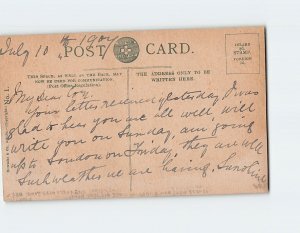 July 10th 1904
POST CARD.
INLAND
½D.
STAMP.
FOREIGN
1D.
THIS SPACE, AS WELL AS THE BACK, MAY
NOW BE USED FOR COMMUNICATION.
(Post Office Regulation).
THE ADDRESS ONLY TO BE
WRITTEN HERE.
My dear
Your letter received yesterday, I was
glad to hear you are all well, will
write you on Sunday, am going
up to London on Friday, they are well
Such weather we are having,